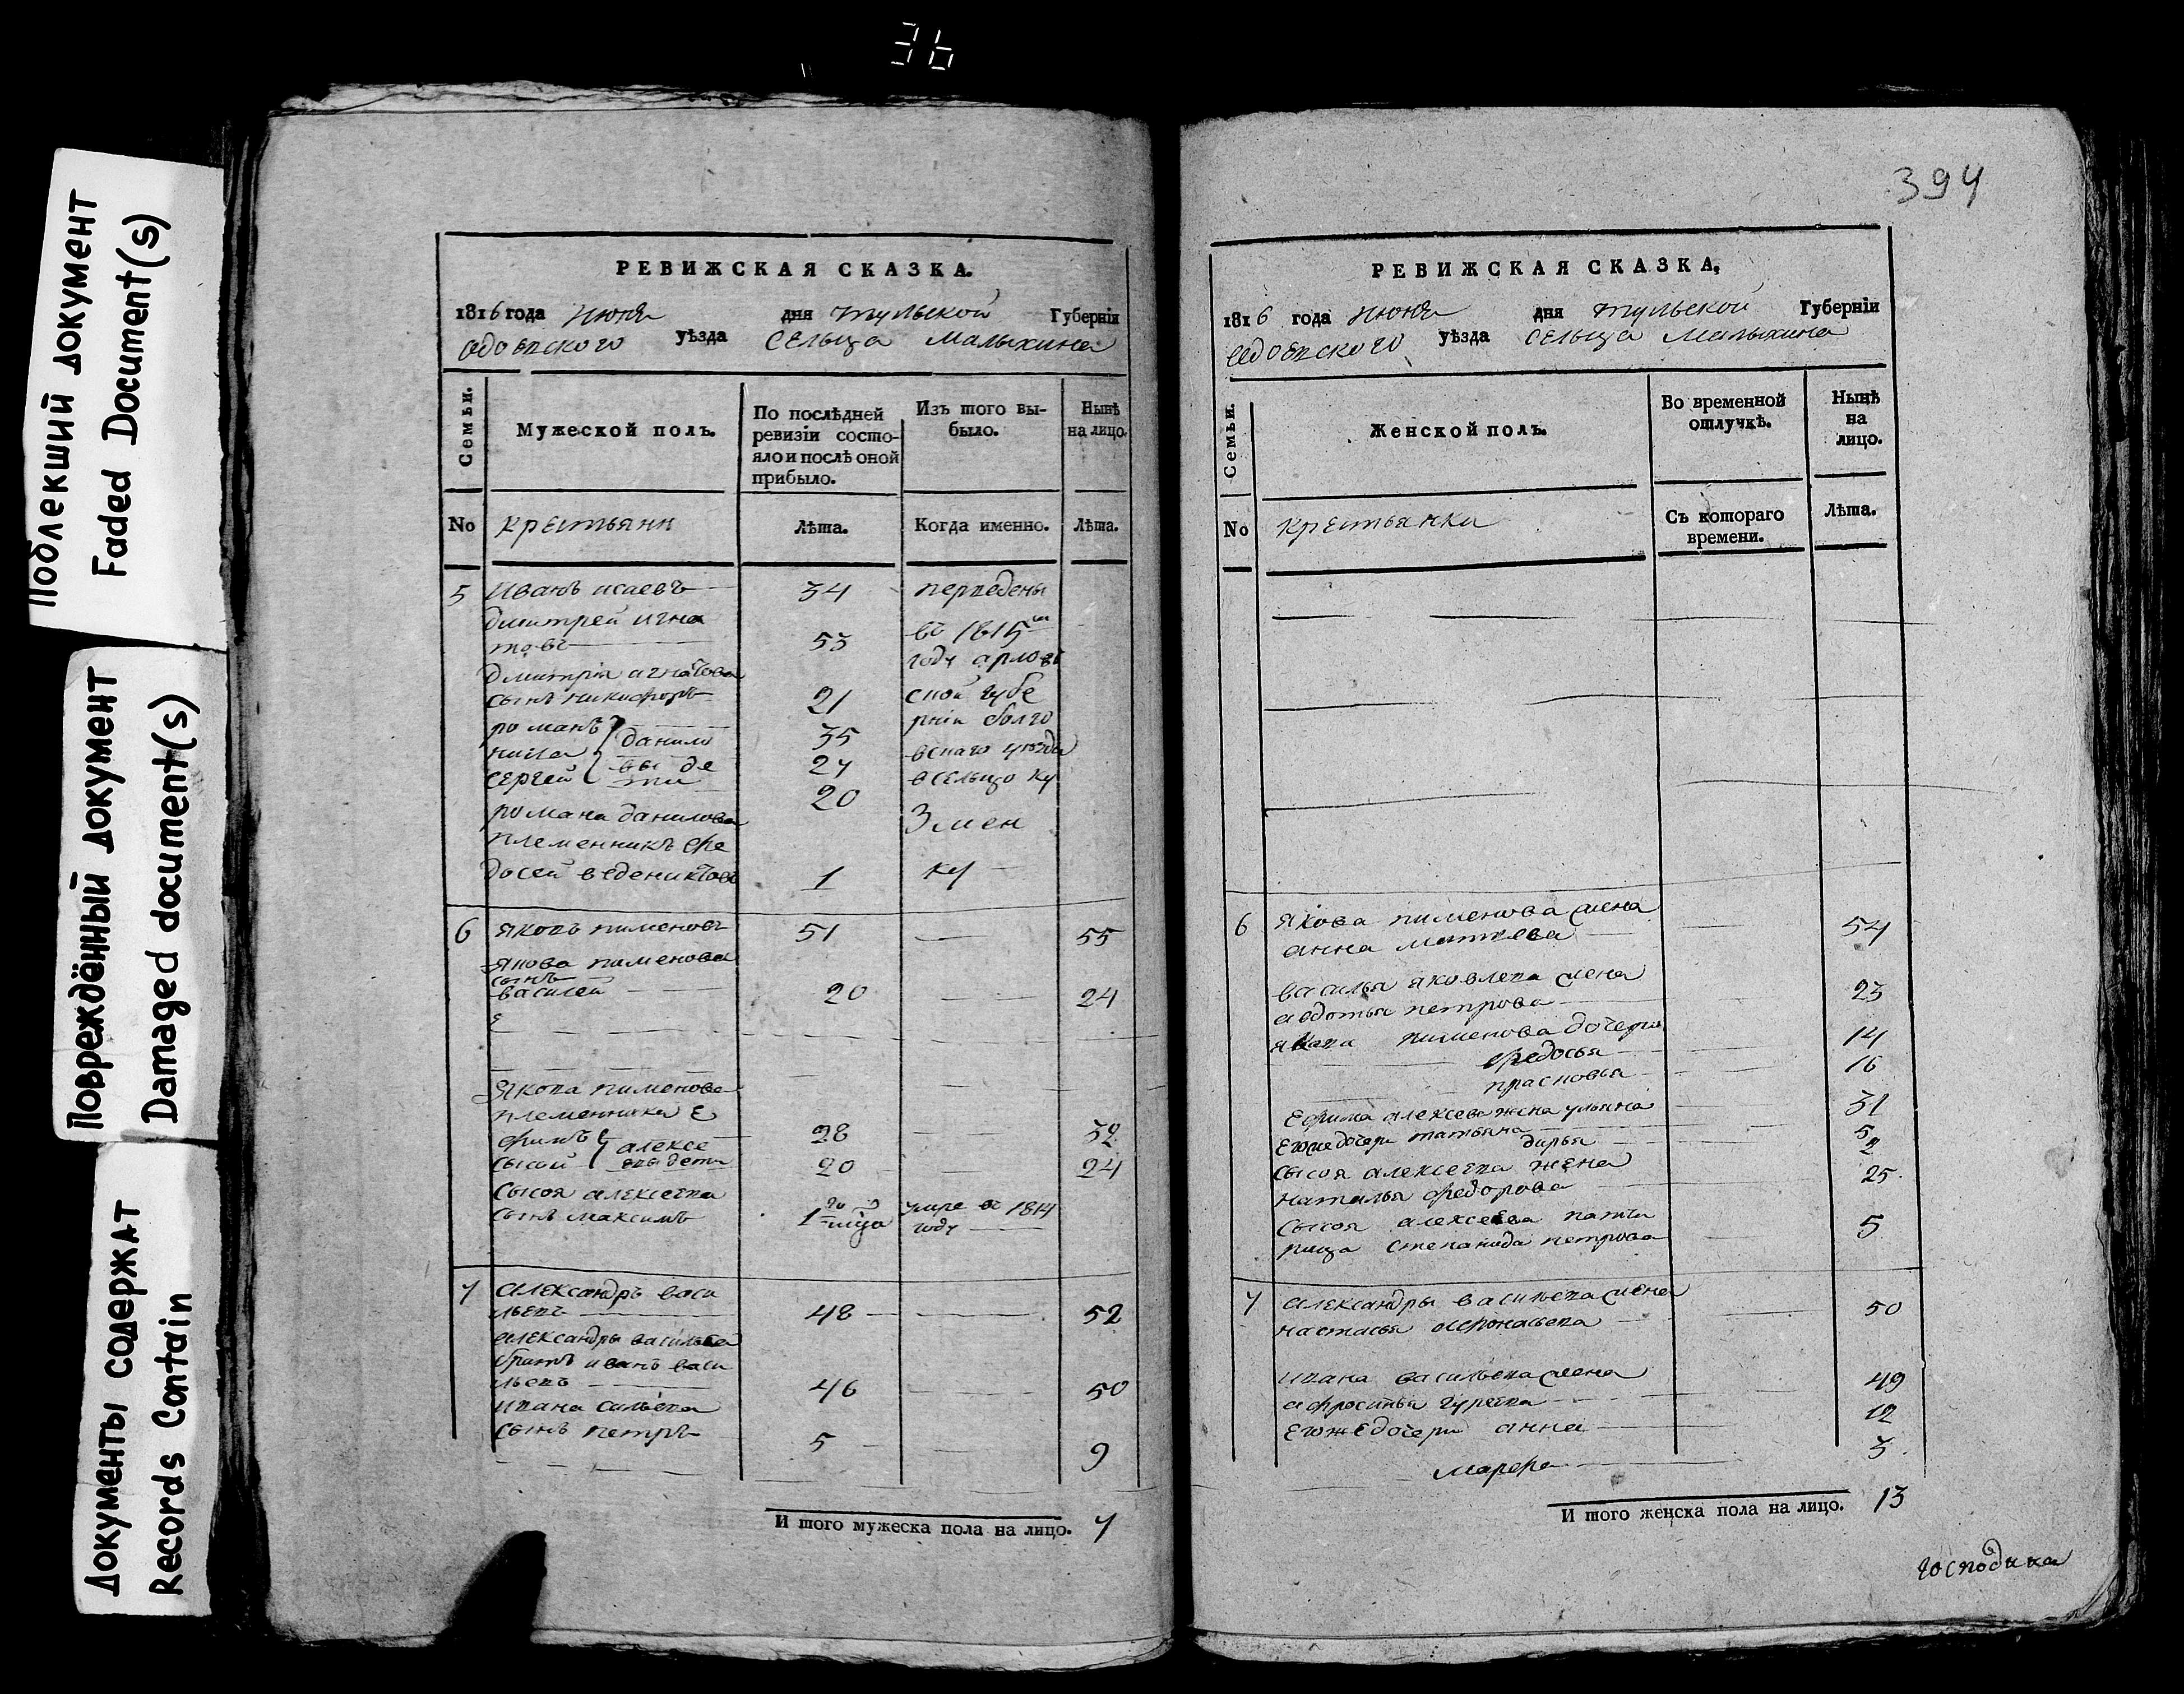 36
Поблекший документ
Faded Document(s)
Повреждённый документ
Damaged document(s)
Документы содержат
Records Contain
РЕВИЖСКАЯ СКАЗКА.
1816 года июня дня тульской Губерніи
одоевского уѣзда сельца малыхина
Семьи.
Мужеской полъ.
По послѣдней
ревизіи состо-
яло и послѣ оной
прибыло.
Изъ того вы-
было.
Нынѣ
на лицо.
No крестьяни Лѣта. Когда именно. Лѣта.
5 Иванъ исаевъ 34 переведены
дмитрей игна
товъ 53 въ 1815м
году арлов
дмитрія игнатова
сынъ никифоръ 21 ской губе
романъ 35 рніи болхо
данило
никита 27 вскаго уѣзда
вы де
сергей ти 20 в сельцо ку
романа данилова
змен
племенникъ фе
досей веденихтовъ 1 ку
6 яковъ пименовъ 51 55
якова пименова
сынъ
василей 20 24
якова пименова
племенники е
фимъ алексе 28 32
сысой евы дети 20 24
сысоя алексеева
сынъ максимъ 1 умре в 1814
году
7 александръ васи
льевъ 48 52
александры васильева
братъ иванъ васи
льевъ 46 50
ивана сильева
сынъ петръ 5 9
И того мужеска пола на лицо. 7
394
РЕВИЖСКАЯ СКАЗКА.
1816 года июня дня тульской Губерніи
одоевского уѣзда сельца малыхина
Семьи.
Женской полъ.
Во временной
отлучкѣ.
Нынѣ
на
лицо.
No крестьянки
Съ котораго
времени.
Лѣта.
6 якова пименова жена
анна матвева 54
василья яковлева жена
авдотья петрова 23
якова пименова дочери 14
федосья
прасковья 16
ефима алексева жена ульяна 31
егожедочери татьяна 5
дарья 2
сысоя алексеева жена
наталья федорова 25
сысоя алексеева патче
рица степанида петрова 5
7 александры васильева жена
настасья афонасьева 50
ивана васильева жена
афросинья гурьева 49
егожедочери анна 12
марфа 3
И того женска пола на лицо. 13
господина